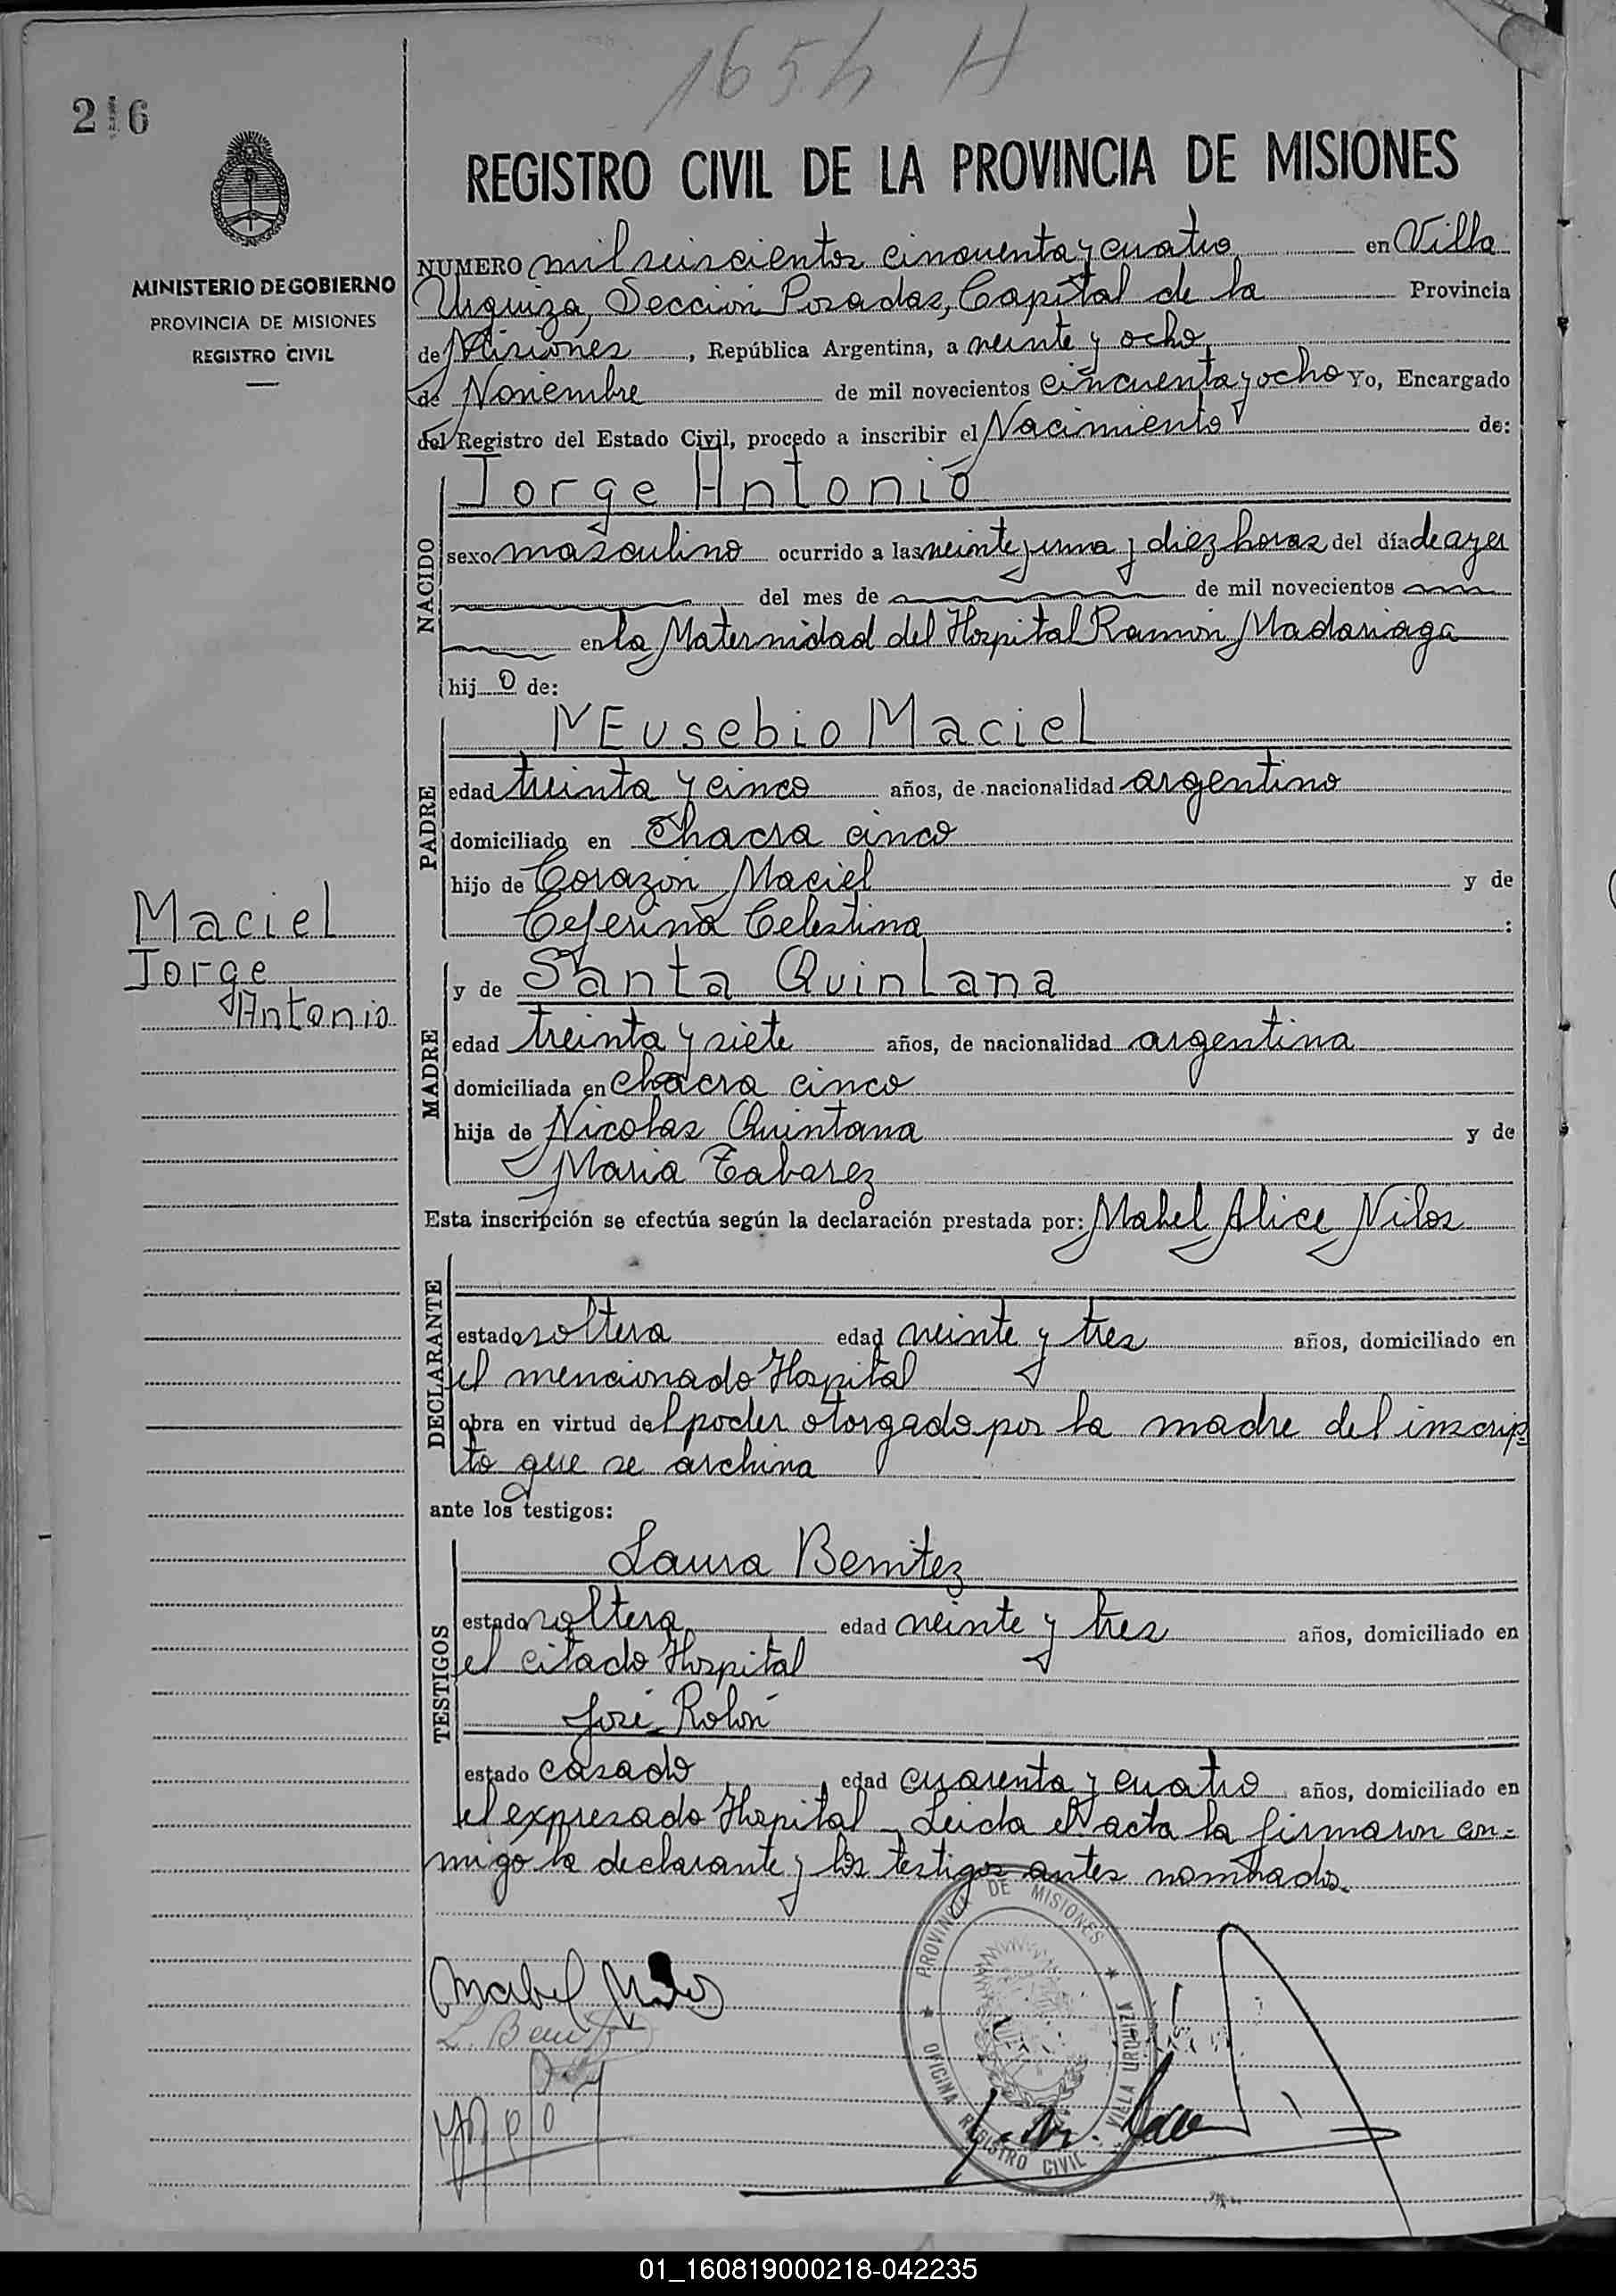 1654 H
216
REGISTRO CIVIL DE LA PROVINCIA DE MISIONES
MINISTERIO DE GOBIERNO
PROVINCIA DE MISIONES
REGISTRO CIVIL
NUMERO mil seiscientos cincuenta y cuatro en Villa
Urquiza, Sección Posadas, Capital de la Provincia
de Misiones, República Argentina, a veinte y ocho
de Noviembre de mil novecientos cincuenta y ocho Yo, Encargado
del Registro del Estado Civil, procedo a inscribir el Nacimiento de:
Jorge Antonio
NACIDO
sexo masculino ocurrido a las veinte y una y diez horas del día de ayer
del mes de de mil novecientos
en la Maternidad del Hospital Ramón Madariaga
hijo de:
Eusebio Maciel
PADRE
edad treinta y cinco años, de nacionalidad argentino
domiciliado en Chacra cinco
hijo de Corazón Maciel y de
Ceferina Celestina :
Maciel
Jorge
Antonio
y de Santa Quintana
MADRE
edad treinta y siete años, de nacionalidad argentina
domiciliada en chacra cinco
hija de Nicolas Quintana y de
Maria Tabarez
Esta inscripción se efectúa según la declaración prestada por: Mabel Alice Nilos
DECLARANTE
estado soltera edad veinte y tres años, domiciliado en
el mencionado Hospital
obra en virtud del poder otorgado por la madre del inscrip=
to que se archiva
ante los testigos:
Laura Benitez
TESTIGOS
estado soltera edad veinte y tres años, domiciliado en
el citado Hospital
José Rolón
estado casado edad cuarenta y cuatro años, domiciliado en
el expresado Hospital - Leida el acta la firmaron con=
migo la declarante y los testigos antes nombrados.
PROVINCIA DE MISIONES
OFICINA REGISTRO CIVIL
VILLA URQUIZA
Mabel Nilos
L. Benitez
01_160819000218-042235